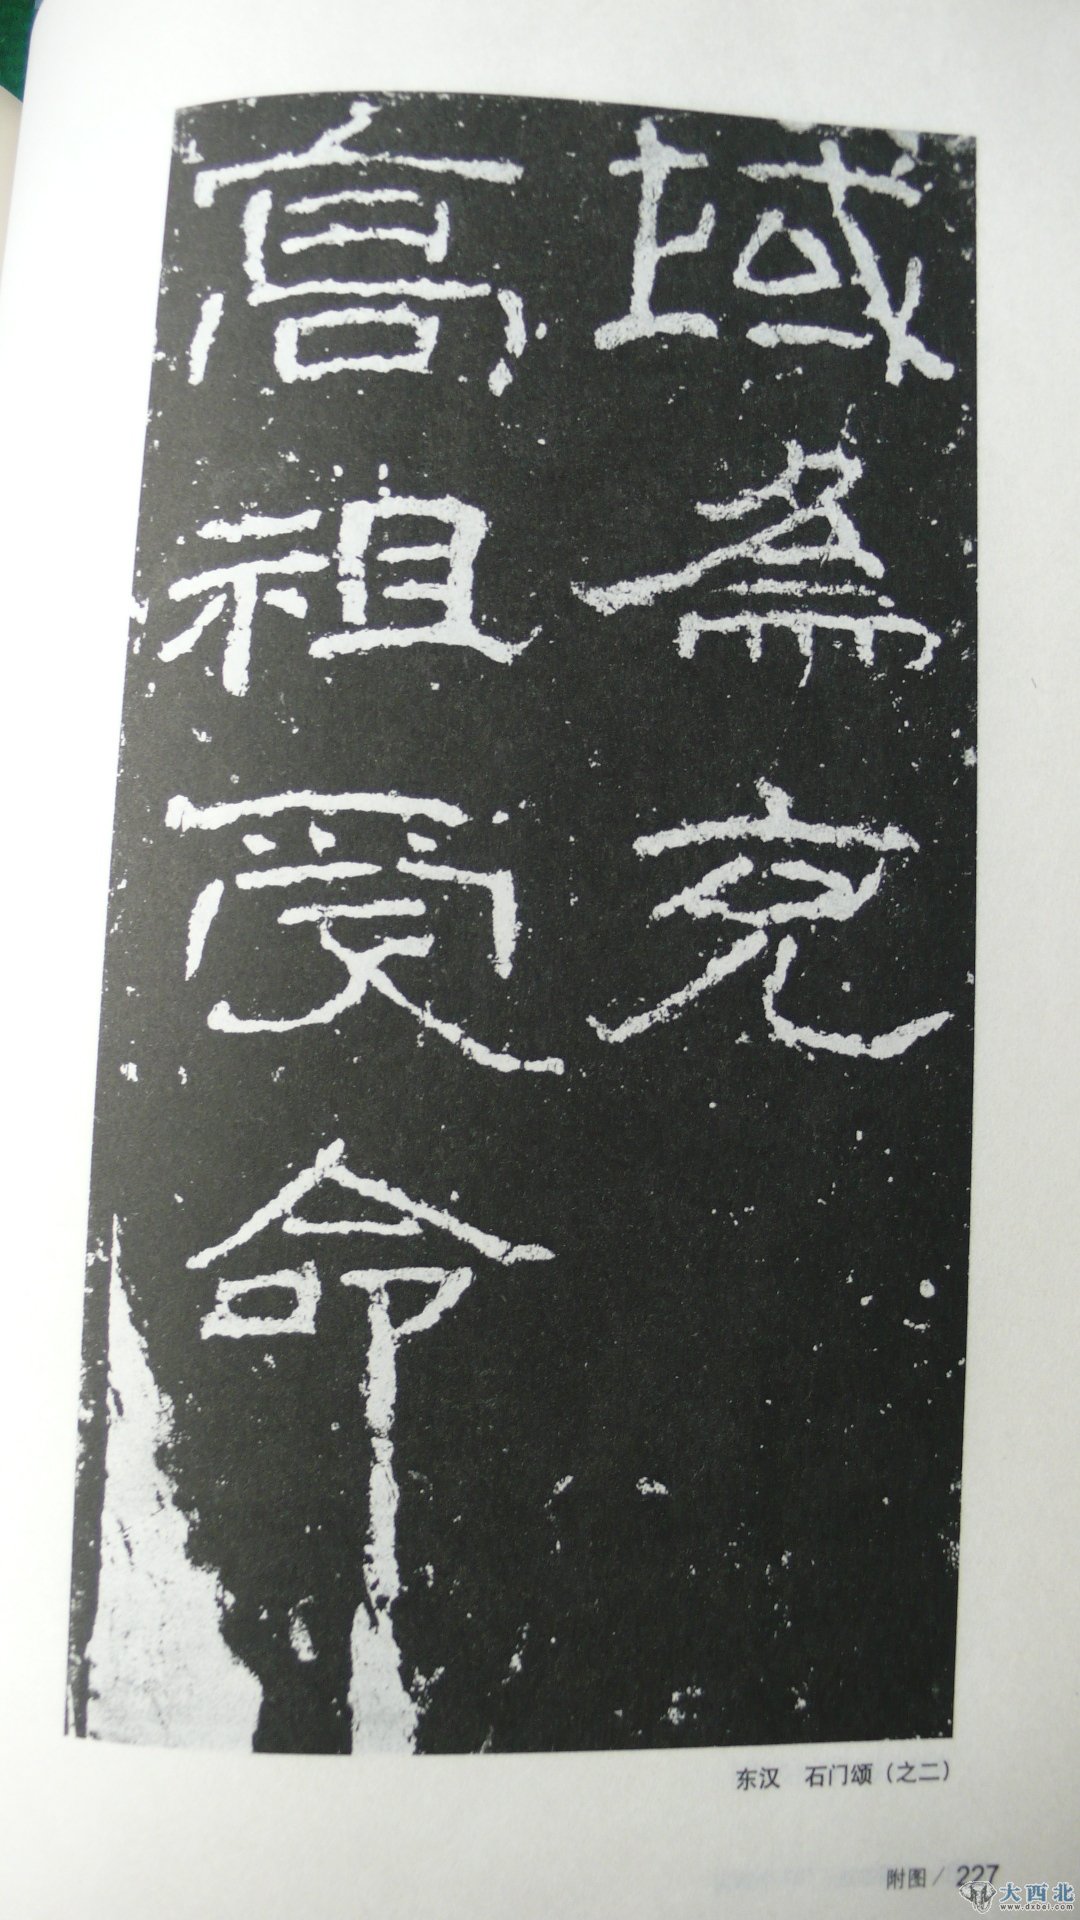 域為充
高祖受命
东汉 石门颂（之二）
附图／227
大西北
www.dxbei.com